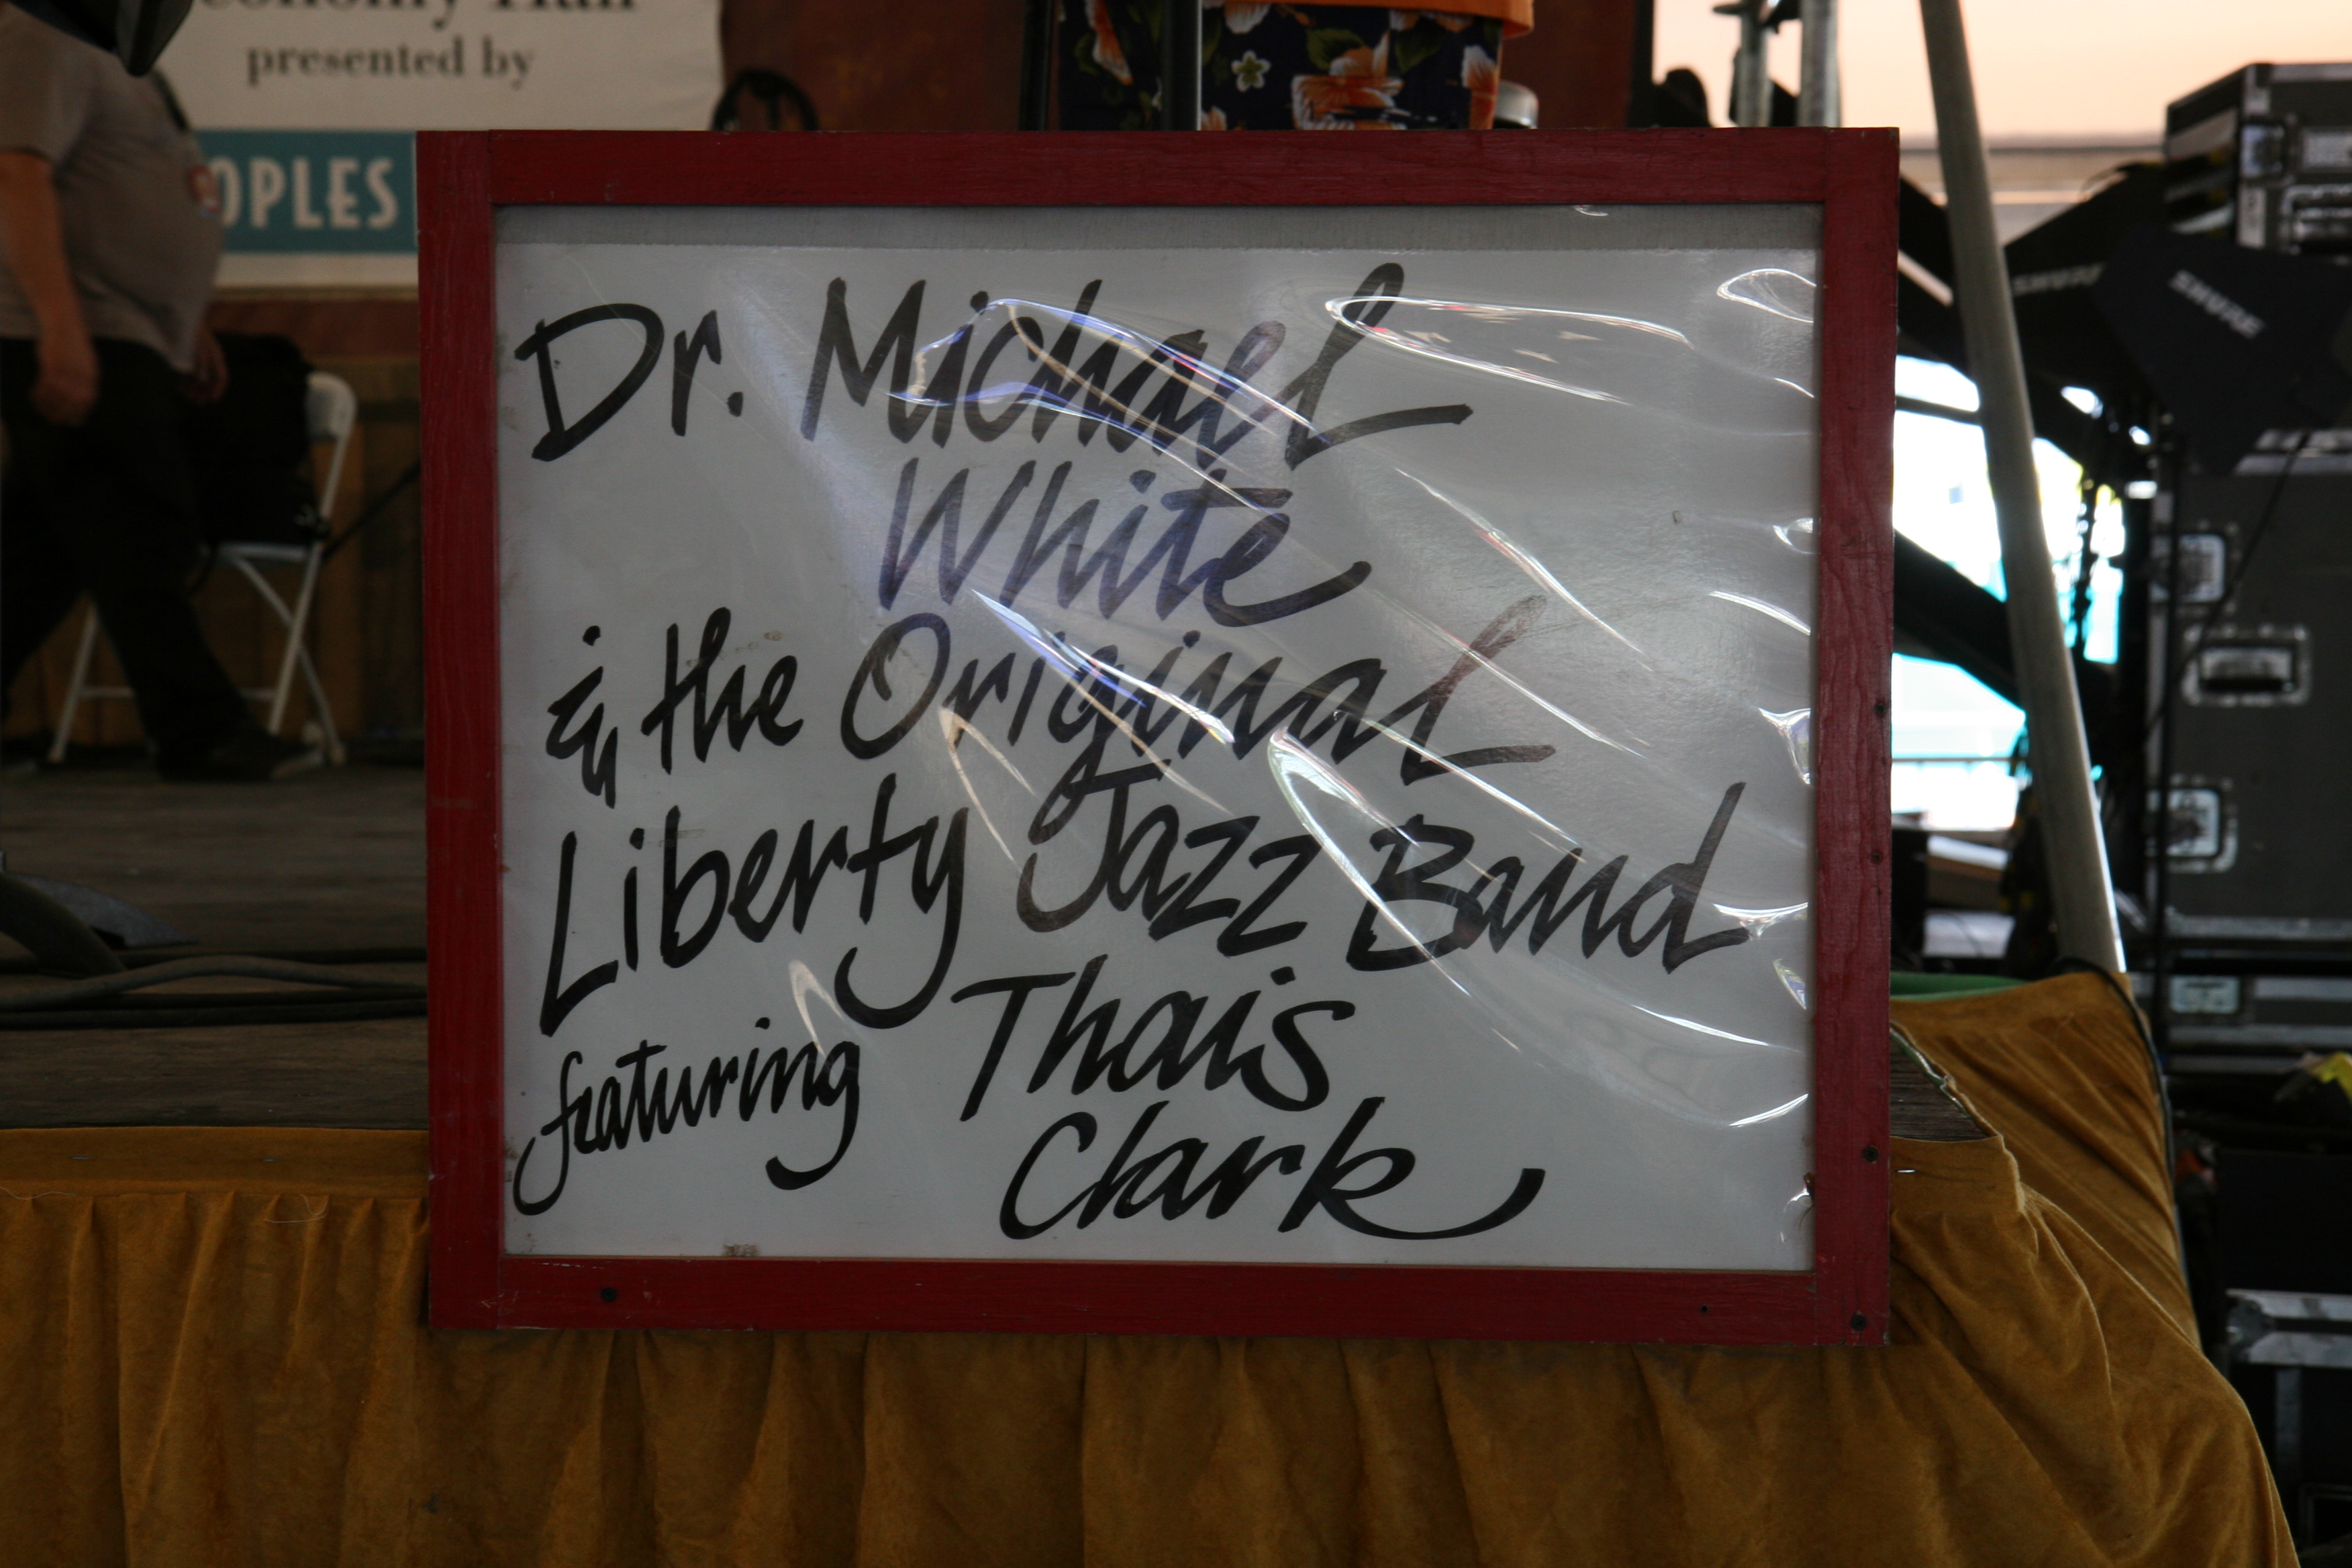 conomy Hall
presented by
OPLES
Dr. Michael
White
& the Original
Liberty Jazz Band
featuring Thais
Clark
SHURE
SHURE